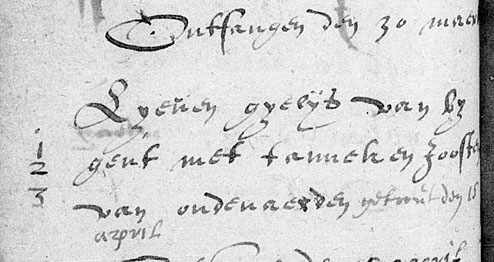 Ontfangen den 30 maert
Lyeuen gyelijs van by
1 gent met tanneken Joosten
2
3 van oudenaerden getrout den 15
april
april